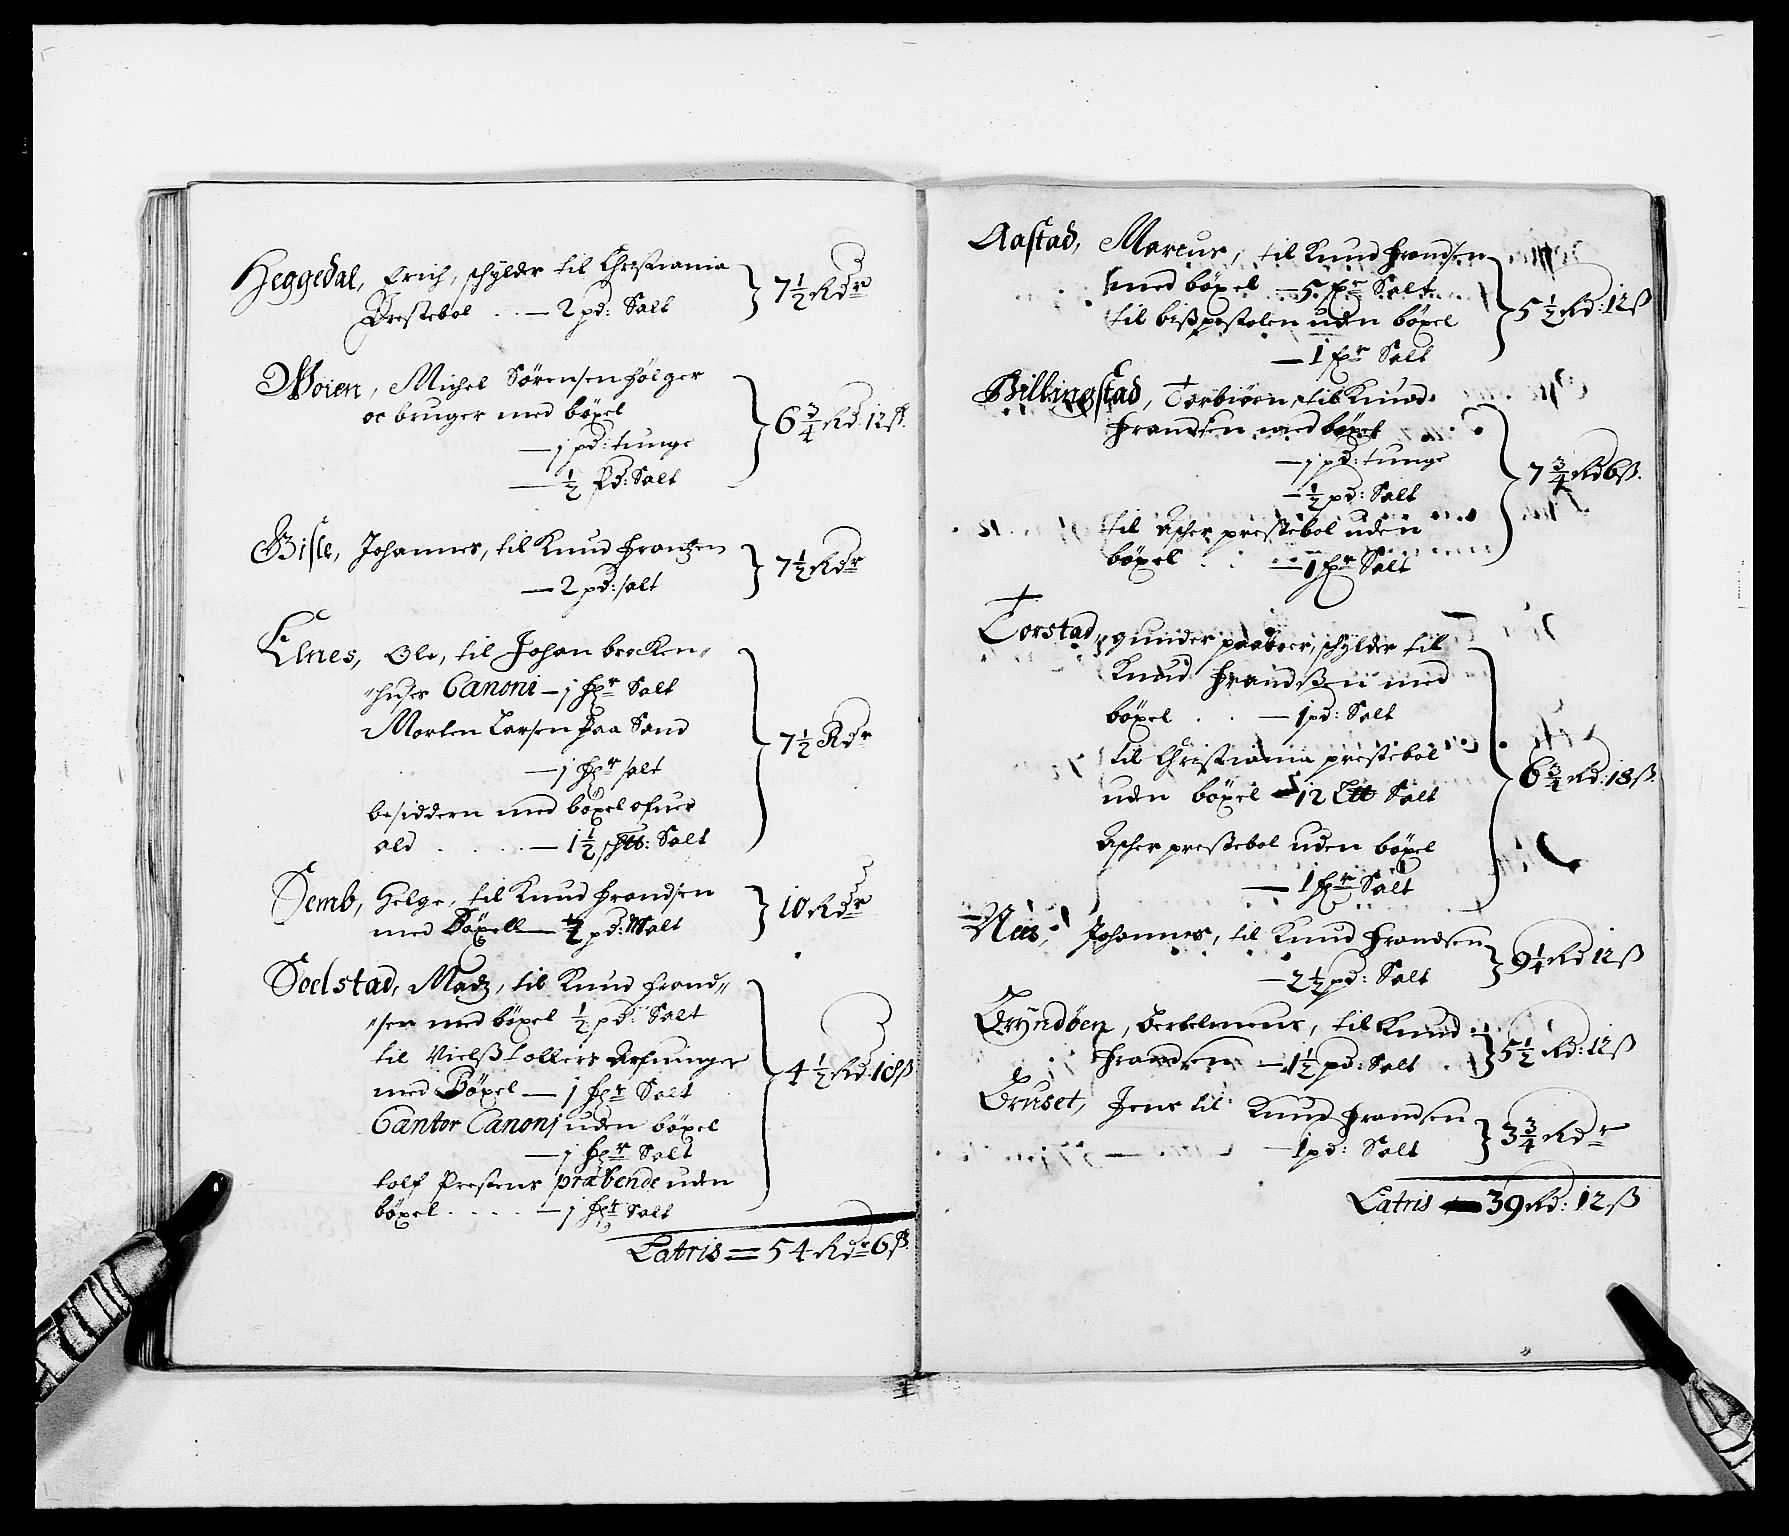 Heggedal, Erich, schylder til Christiania
Prestebol . . — 2 pd: Salt 7½ Rdr
Moien, Michel Sørensen følger
oc bruger med böxel
— j pd: tunge
— ½ Pd: Salt 6¾ Rd: 12 ß.
Gisle, Johannes, til Knud Frantzen
— 2 pd: salt 7½ Rdr
Elnes, Ole, til Johan brocken„
„huser Canoni — j fßr Salt
Morten Larsen paa Sand
— j fßr salt
besiddern med böxel ofuer
ald . . . . . — 1½ Salt 7½ Rdr
Semb, Helge, til Knud Frandsen
med Böxell — ½ pd: Malt 10 Rdr
Soelstad, Madz, til Knud Frand„
„sen med böxel ½ pd: Salt
til Nielß tollers Arfuinger
med Böxel — j fßr Salt
Cantor Canonj uden böxel
— j fßr Salt
tolf Prestens præbende uden
böxel . . . . — j fßr Salt 4½ Rd: 18 ß
Latris = 54 Rdr 6 ß.
Aastad, Marcus, til Knud Frandsen
med böxel — 5 fßr Salt
til bißpestolen uden böxel
— 1 fßr Salt 5½ Rd: 12 ß
Billingstad, Torbiørn, til Knud
Frandsen med böxel
— j pd: tunge
— ½ pd: Salt
til Ascher prestebol uden
böxel . . — 1 fßr Salt 7¾ Rd 6 ß.
Torstad, gunder paaboer, schylder til
Knud Frandßen med
böxel . . — 1 pd: Salt
til Christiania prestebol
uden böxel — 12 Salt
Ascher prestebol uden böxel
— 1 fßr Salt 6¾ Rd: 18 ß
Nees, Johannes, til Knud Frandsen
— 2½ pd: Salt 9¼ Rd 12 ß
Bryndöen, Bertelmeus, til Knud
Frandsen — 1½ pd: Salt 5½ Rd: 12 ß
Bruset, Jens til Knud Frandsen
— 1 pd: Salt 3¾ Rdr
Latris — 39 Rd: 12 ß